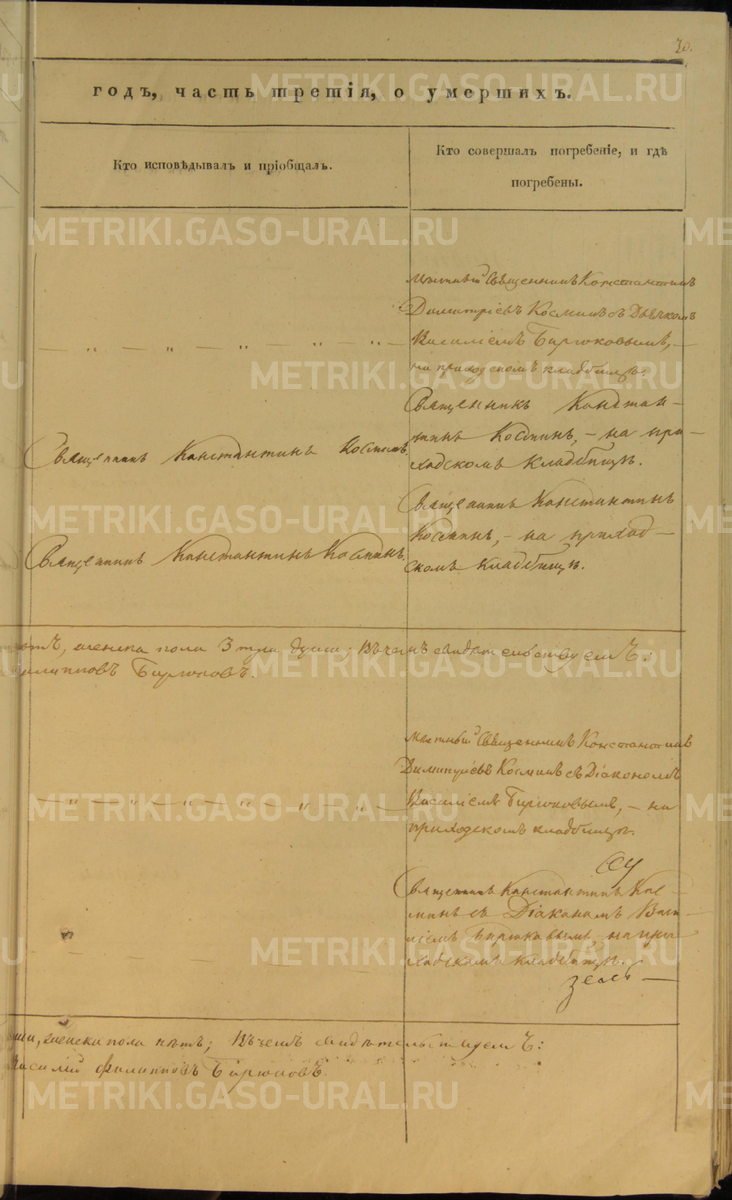 годъ, часть третія, о умершихъ.
Кто исповѣдывалъ и пріобщалъ.
Кто совершалъ погребеніе, и гдѣ
погребены.
Мѣстный Священникъ Константинъ
Димитріевъ Косминъ съ Дьячкомъ
Василіемъ Бирюковымъ, —
на приходскомъ кладбищѣ.
Священникъ Константинъ Косминъ.
Священникъ Констан-
тинъ Косминъ, — на при-
ходскомъ кладбищѣ.
Священникъ Константинъ Косминъ.
Священникъ Константинъ
Косминъ, — на приход-
скомъ кладбищѣ.
женска пола 3 три души; Въ чемъ свидѣтельствуемъ:
Бирюковъ.
Мѣстный Священникъ Константинъ
Димитріевъ Косминъ съ Діакономъ
Василіемъ Бирюковымъ, — на
приходскомъ кладбищѣ.
Священникъ Константинъ Кос-
минъ съ Діаконамъ Васи-
ліемъ Бирюковымъ, на при-
ходскомъ кладбищѣ.
женска пола нѣтъ; Въ чемъ свидѣтельствуемъ:
Василій Филипповъ Бирюковъ
METRIKI.GASO-URAL.RU